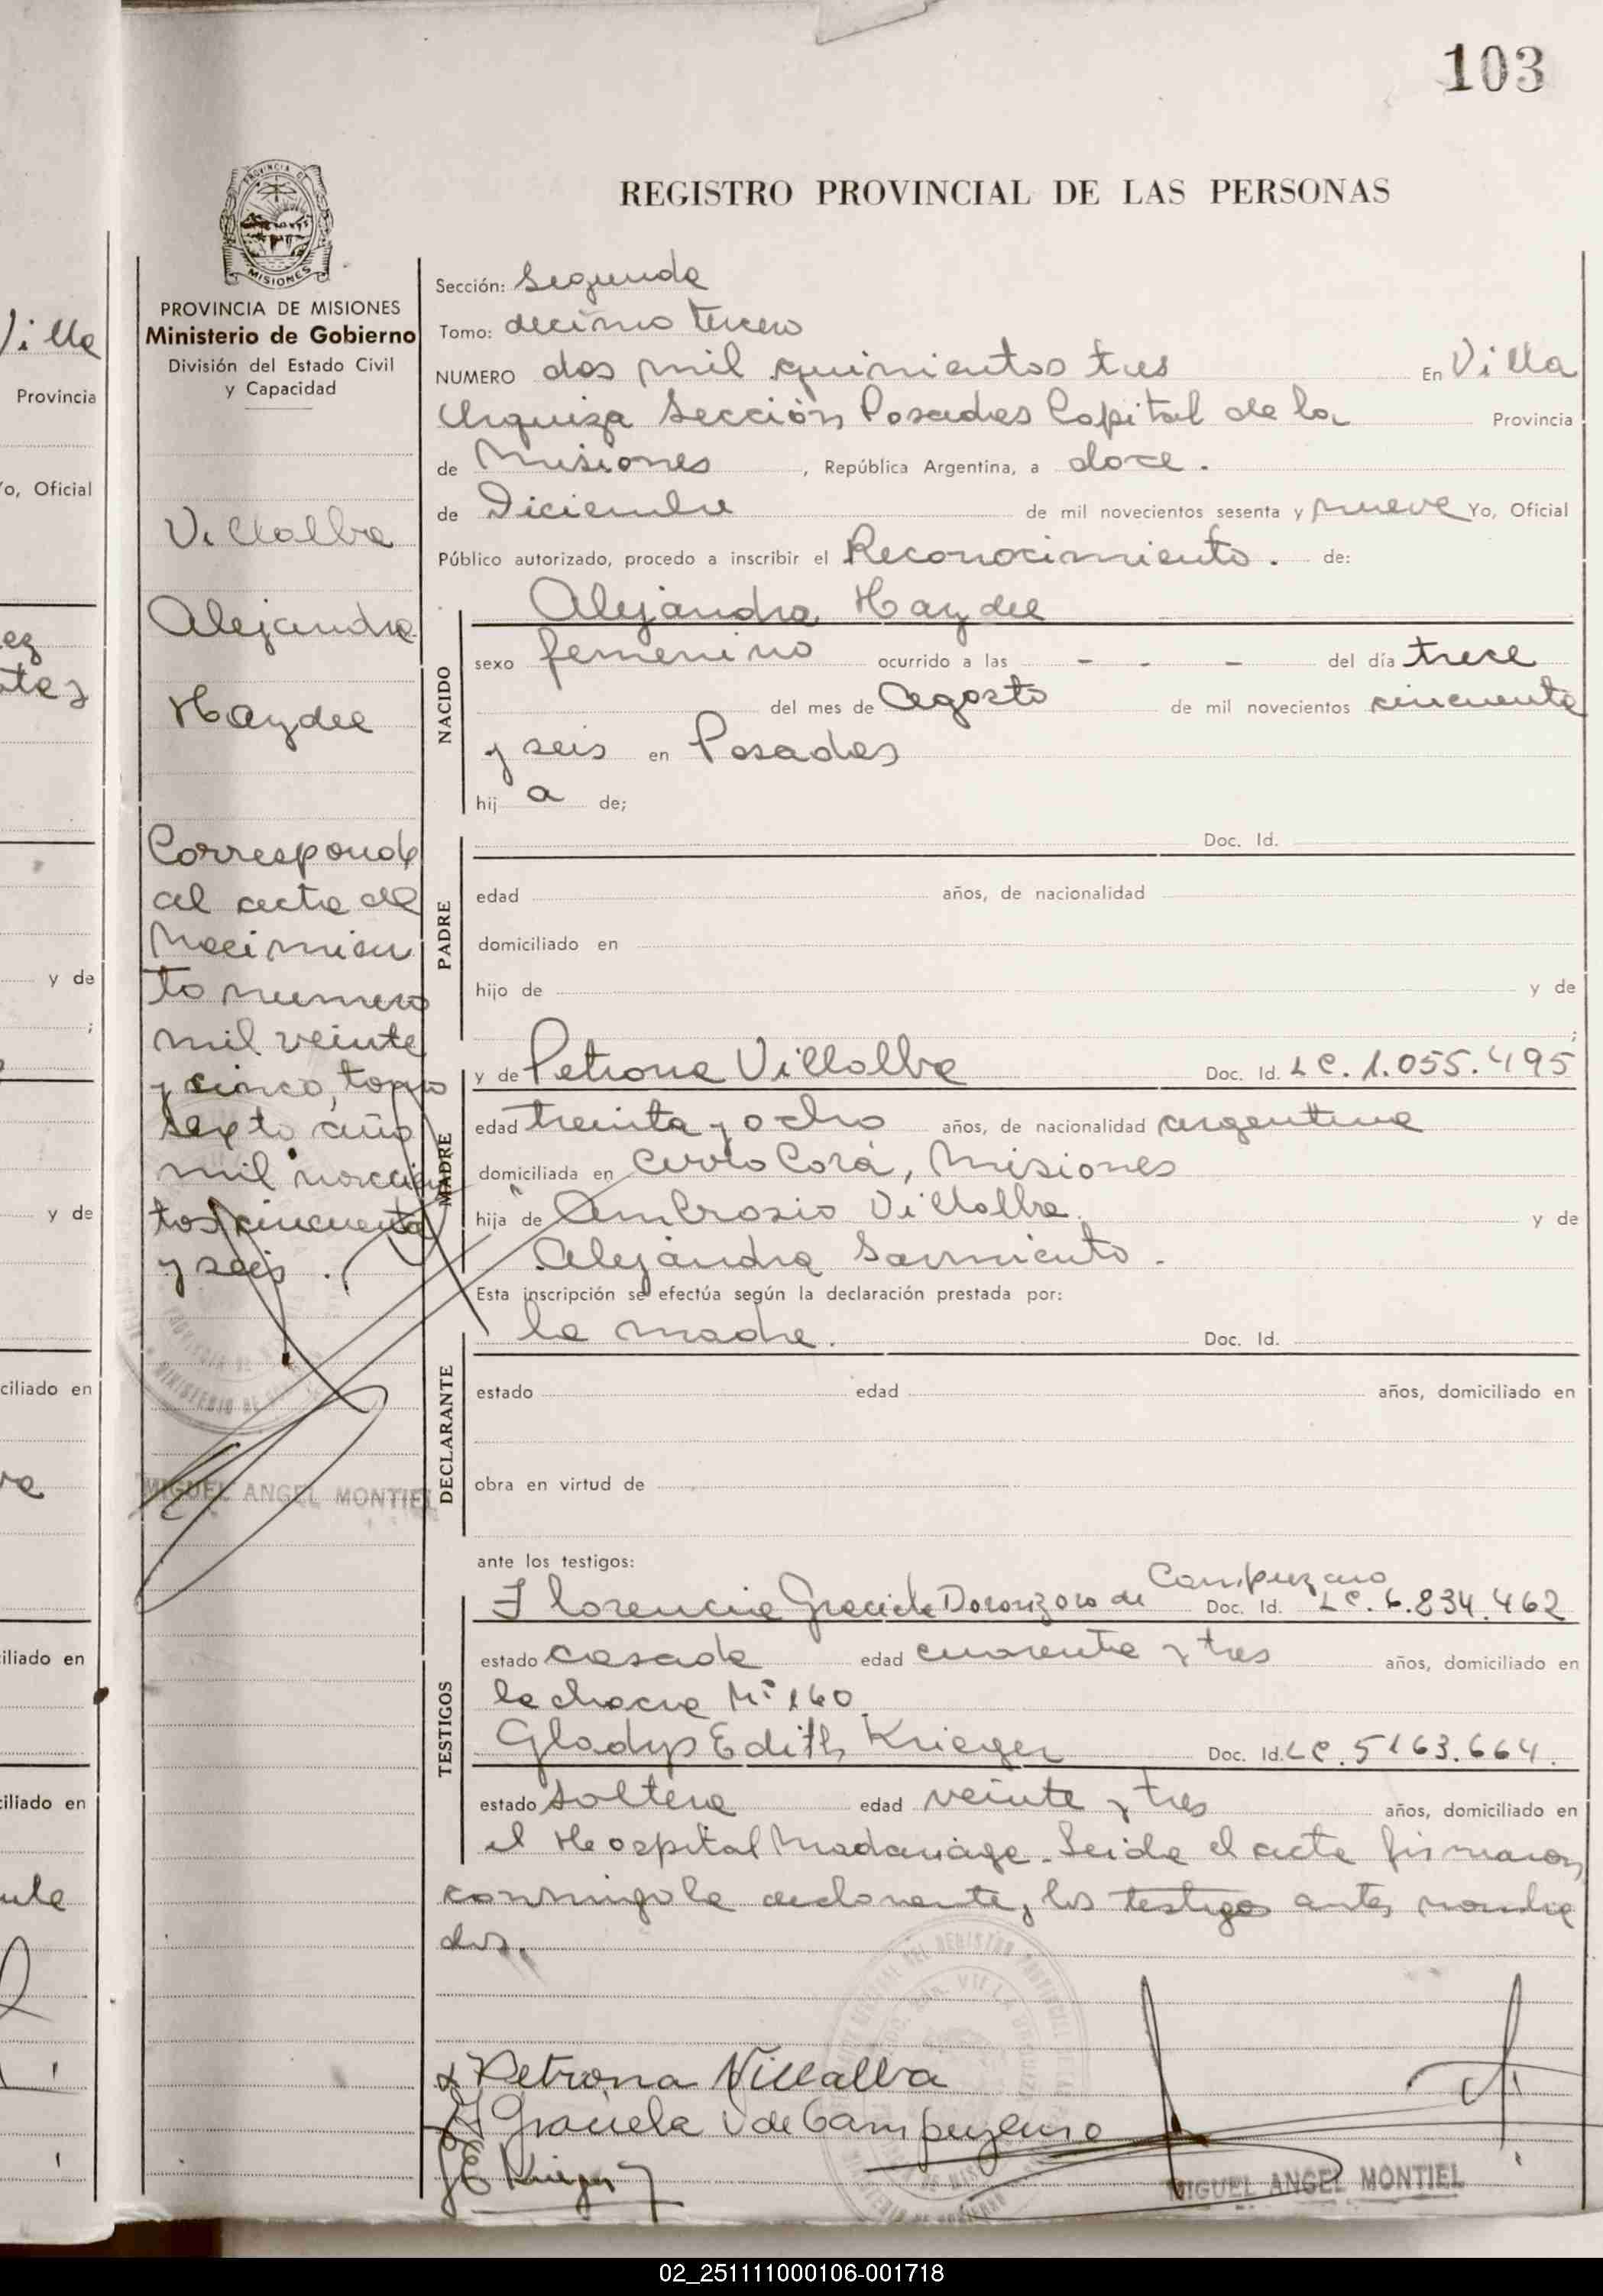 103
REGISTRO PROVINCIAL DE LAS PERSONAS
PROVINCIA DE
MISIONES
PROVINCIA DE MISIONES
Ministerio de Gobierno
División del Estado Civil
y Capacidad
Villalba
Alejandra
Haydee
Corresponde
al acta de
Nacimien
to numero
mil veinte
y cinco, tomo
sexto año
mil novecien
tos cincuenta
y seis.
MIGUEL ANGEL MONTIEL
Sección: Segunda
Tomo: decimo tercero
NUMERO dos mil quinientos tres En Villa
Urquiza Sección Posadas Capital de la Provincia
de Misiones, República Argentina, a doce.
de Diciembre de mil novecientos sesenta y nueve Yo, Oficial
Público autorizado, procedo a inscribir el Reconocimiento. de:
Alejandra Haydee
NACIDO
sexo femenino ocurrido a las - - - del día trece
del mes de Agosto de mil novecientos cincuenta
y seis en Posadas
hij a de;
PADRE
Doc. Id.
edad años, de nacionalidad
domiciliado en
hijo de y de
;
MADRE
y de Petrona Villalba Doc. Id. LC. 1.055.495
edad treinta y ocho años, de nacionalidad argentina
domiciliada en Cerro Corá, Misiones
hija de Ambrosio Villalba. y de
Alejandra Sarmiento.
Esta inscripción se efectúa según la declaración prestada por:
DECLARANTE
la madre. Doc. Id.
estado edad años, domiciliado en
obra en virtud de
ante los testigos:
TESTIGOS
Campuzano
Florencia Graciela de Doc. Id. LC. 6.834.462
estado casada edad cuarenta y tres años, domiciliado en
la chacra Nº 160
Gladys Edith Krieger Doc. Id. LC. 5163.664.
estado soltera edad veinte y tres años, domiciliado en
el Hospital Madariaga. Leida el acta firmaron
conmigo la declarante, los testigos antes nombra
dos.
Petrona Villalba
Graciela V de Campuzano
G E Krieger
MIGUEL ANGEL MONTIEL
Villa
Provincia
Yo, Oficial
y de
;
y de
ciliado en
iliado en
iliado en
02_251111000106-001718